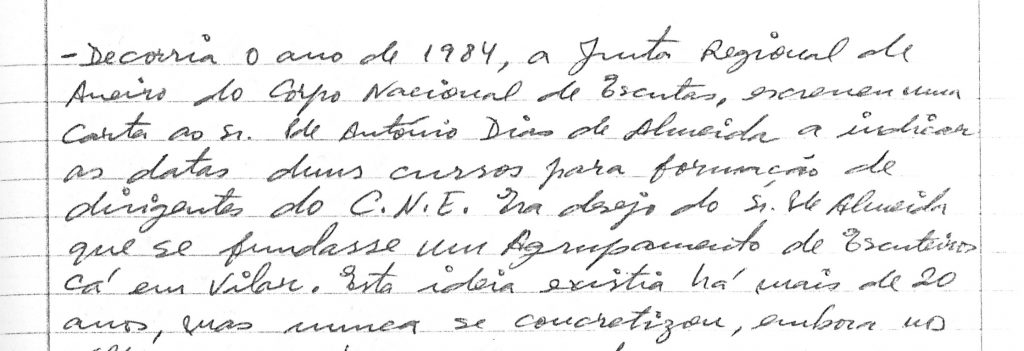 - Decorria o ano de 1984, a Junta Regional de
Aveiro do Corpo Nacional de Escutas, escreveu uma
carta ao Sr. Pde António Dias de Almeida a indicar
as datas duns cursos para formação de
dirigentes do C.N.E. Era desejo do Sr. Pde Almeida
que se fundasse um Agrupamento de Escuteiros
cá em Vilar. Esta ideia existia há mais de 20
anos, mas nunca se concretizou, embora nos